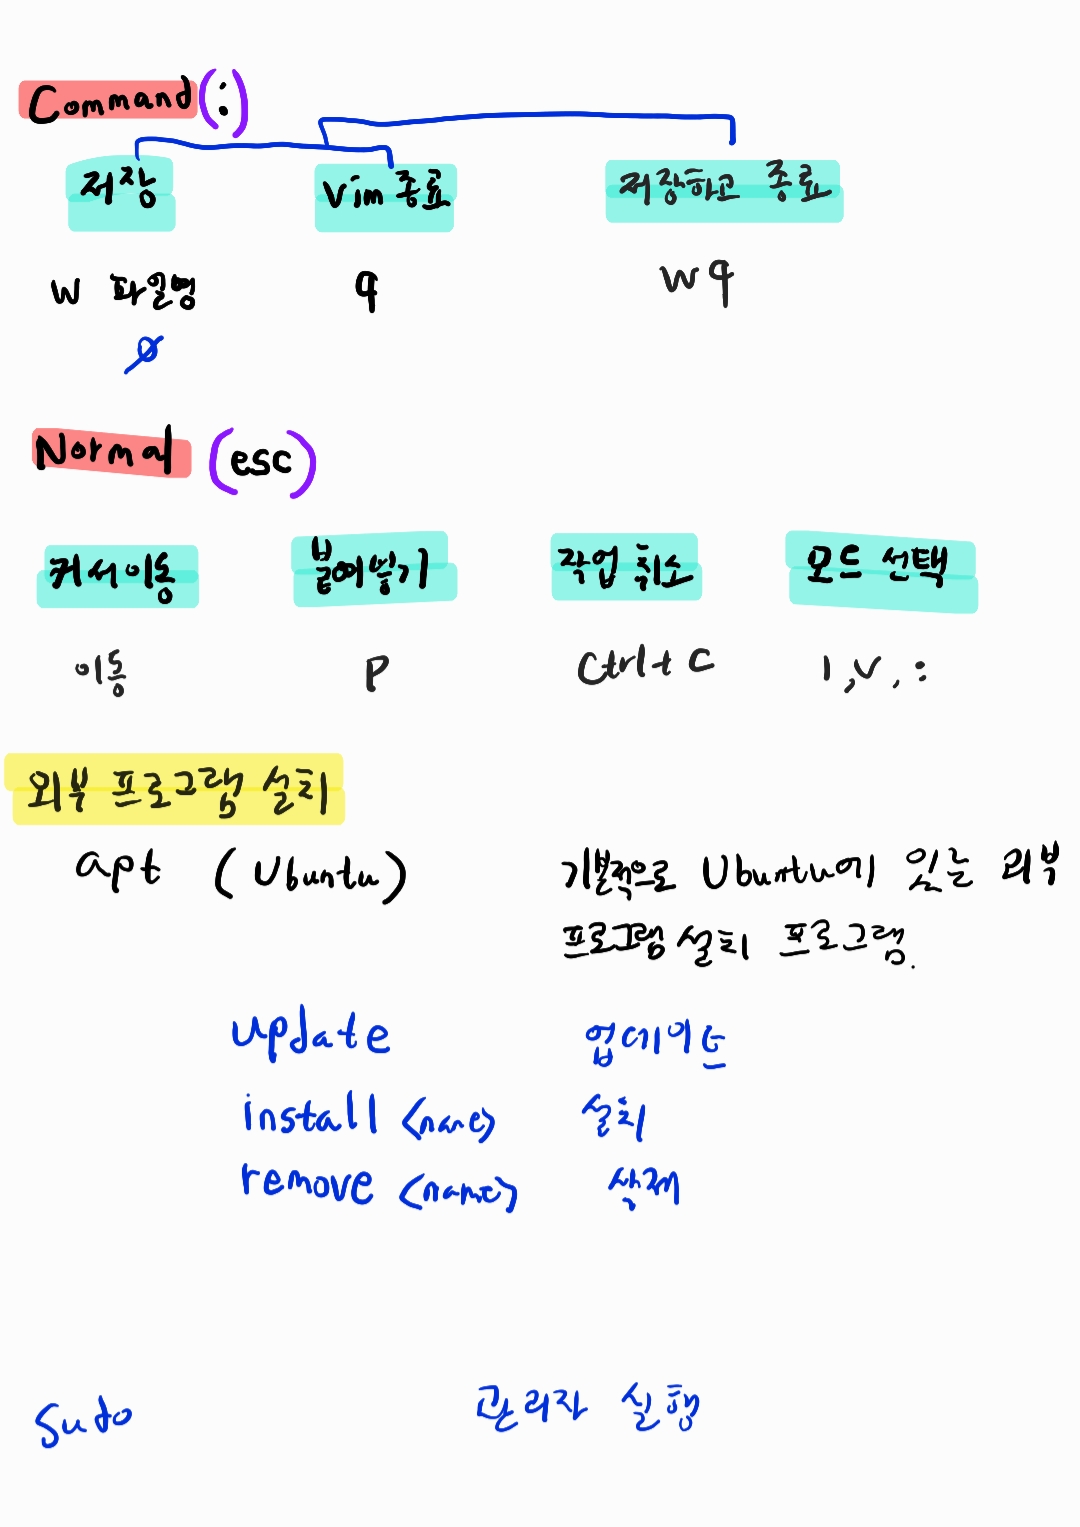 Command (:)
저장 Vim 종료 저장하고 종료
w 파일명 q wq
Ø
Normal (esc)
커서이동 붙여넣기 작업 취소 모드 선택
이동 P Ctrl+C I,V,:
외부 프로그램 설치
apt (Ubuntu) 기본적으로 Ubuntu에 있는 외부
프로그램 설치 프로그램.
update 업데이트
install <name> 설치
remove <name> 삭제
Sudo 관리자 실행